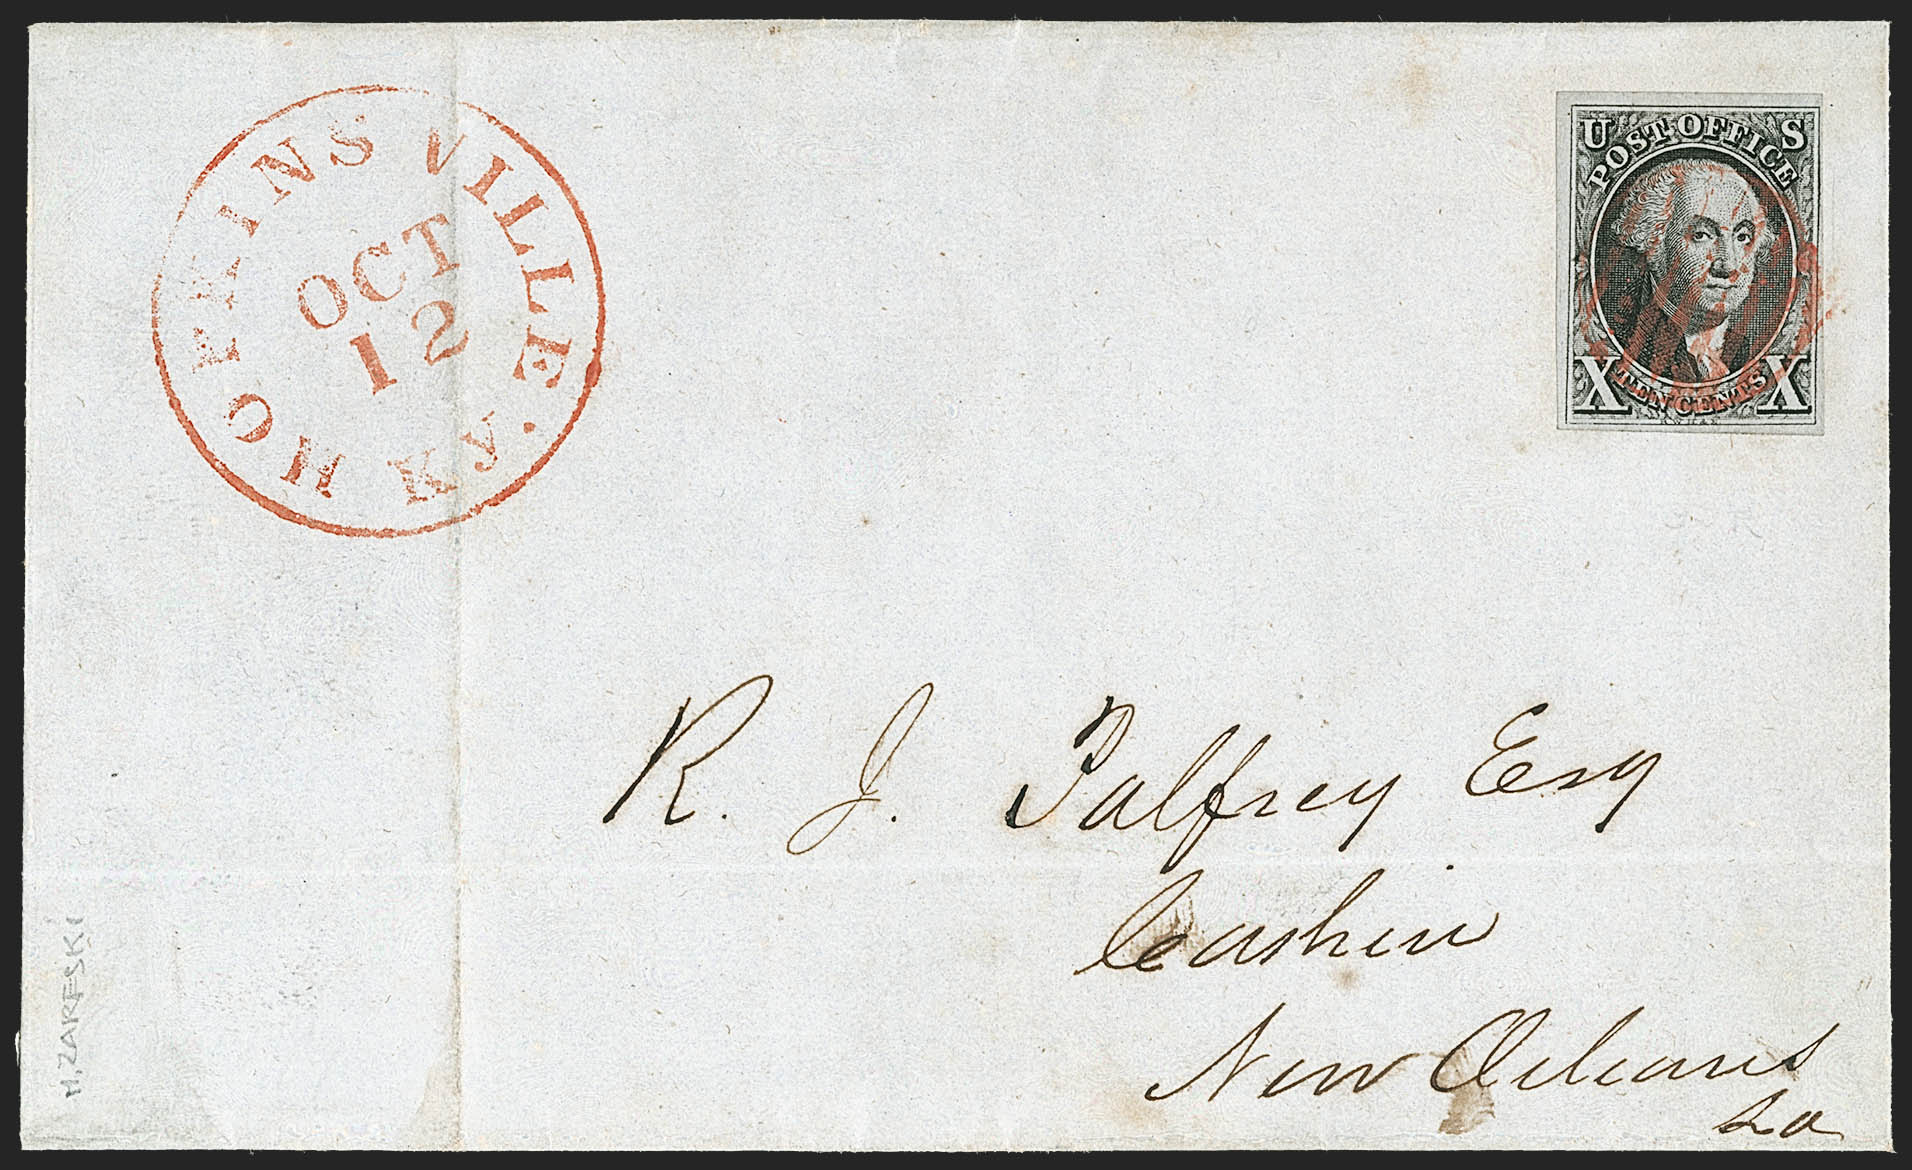 HOPKINSVILLE Ky.
OCT
12
U S
POST OFFICE
X TEN CENTS X
R. J. Palfrey Esq
Cashier
New Orleans
La
H. ZARESKI